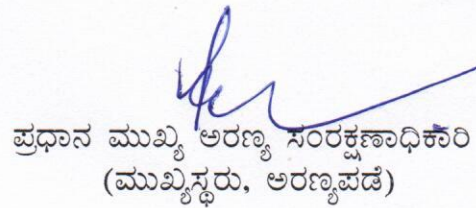 ಪ್ರಧಾನ ಮುಖ್ಯ ಅರಣ್ಯ ಸಂರಕ್ಷಣಾಧಿಕಾರಿ
(ಮುಖ್ಯಸ್ಥರು, ಅರಣ್ಯಪಡೆ)